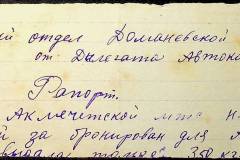 ий отдел Доманевской
от Делегата Автоко
Рапорт.
Акмечетской мтс н
й за бронирован для л
выдала только 350 кг